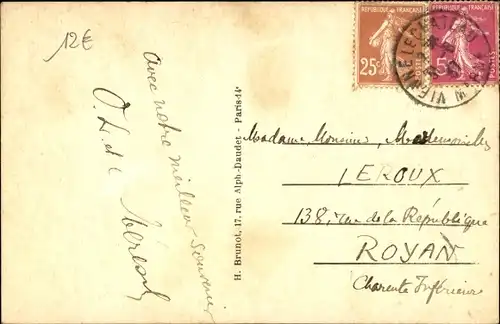 12€
avec notre meilleur souvenir
H. Brunot, 17, rue Alph-Daudet - Paris-14e
REPUBLIQUE FRANÇAISE
25c
REPUBLIQUE FRANÇAISE
POSTES
Madame, Monsieur, Mademoiselle
LEROUX
138, rue de la République
ROYAN
Charente Inférieure